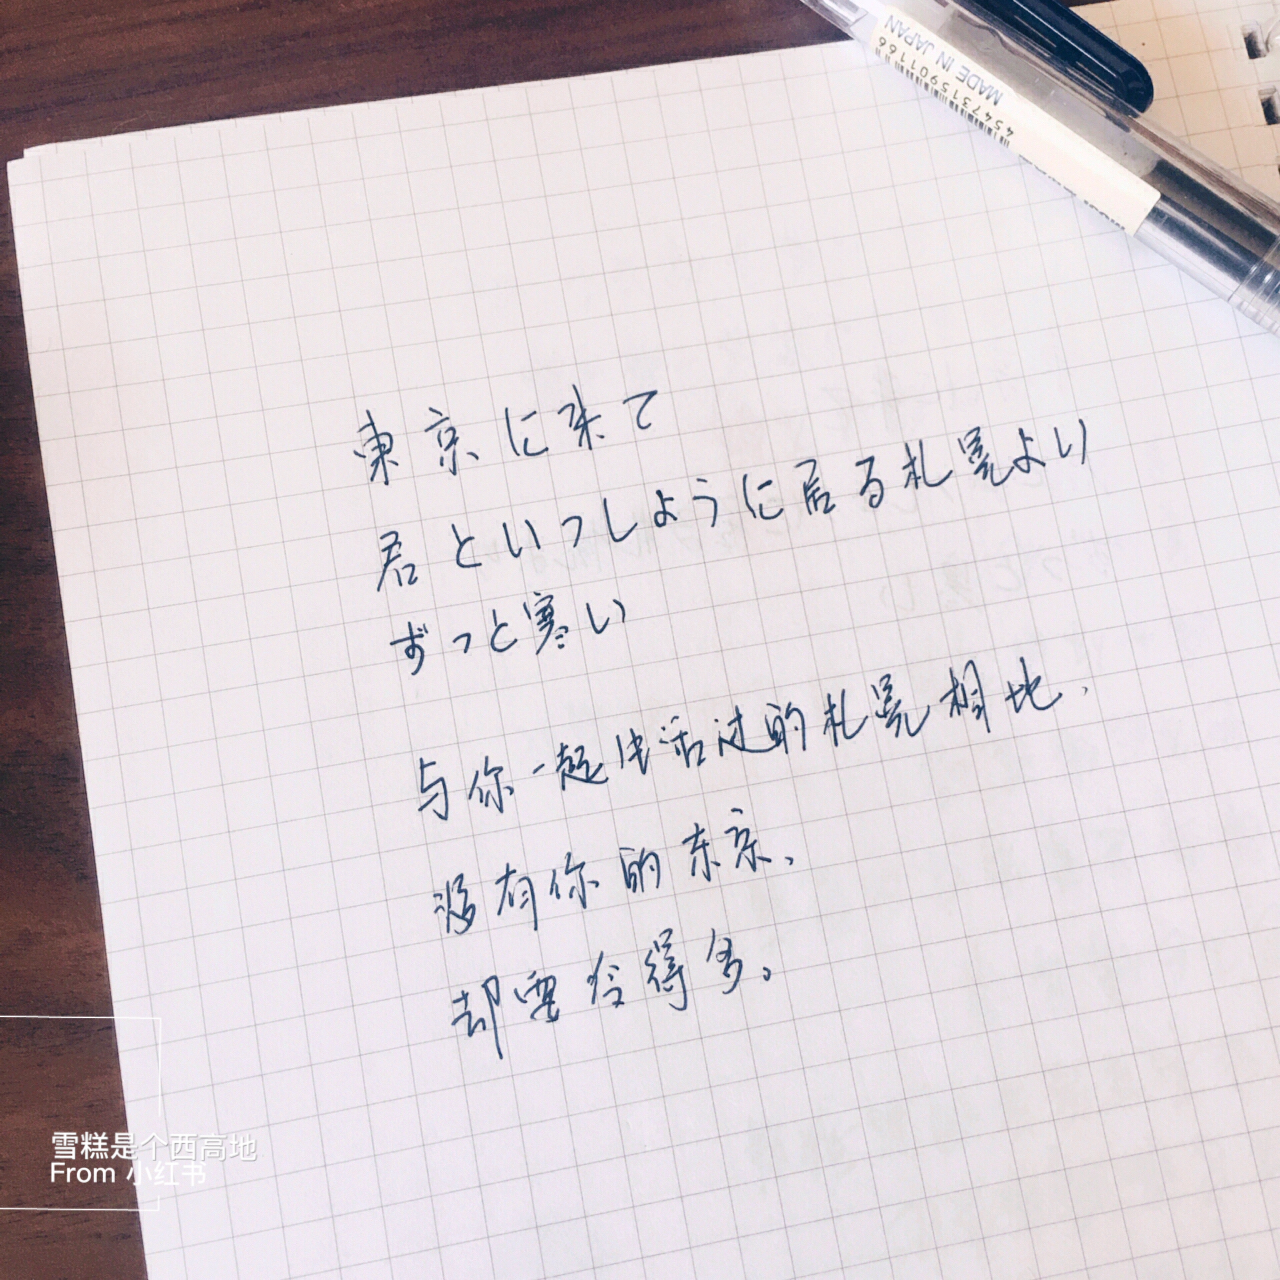 MADE IN JAPAN
4547315901166
東京に来て
君といっしように居る札幌より
ずっと寒い
与你一起生活过的札幌相比,
没有你的东京,
却要冷得多。
雪糕是个西高地
From 小红书